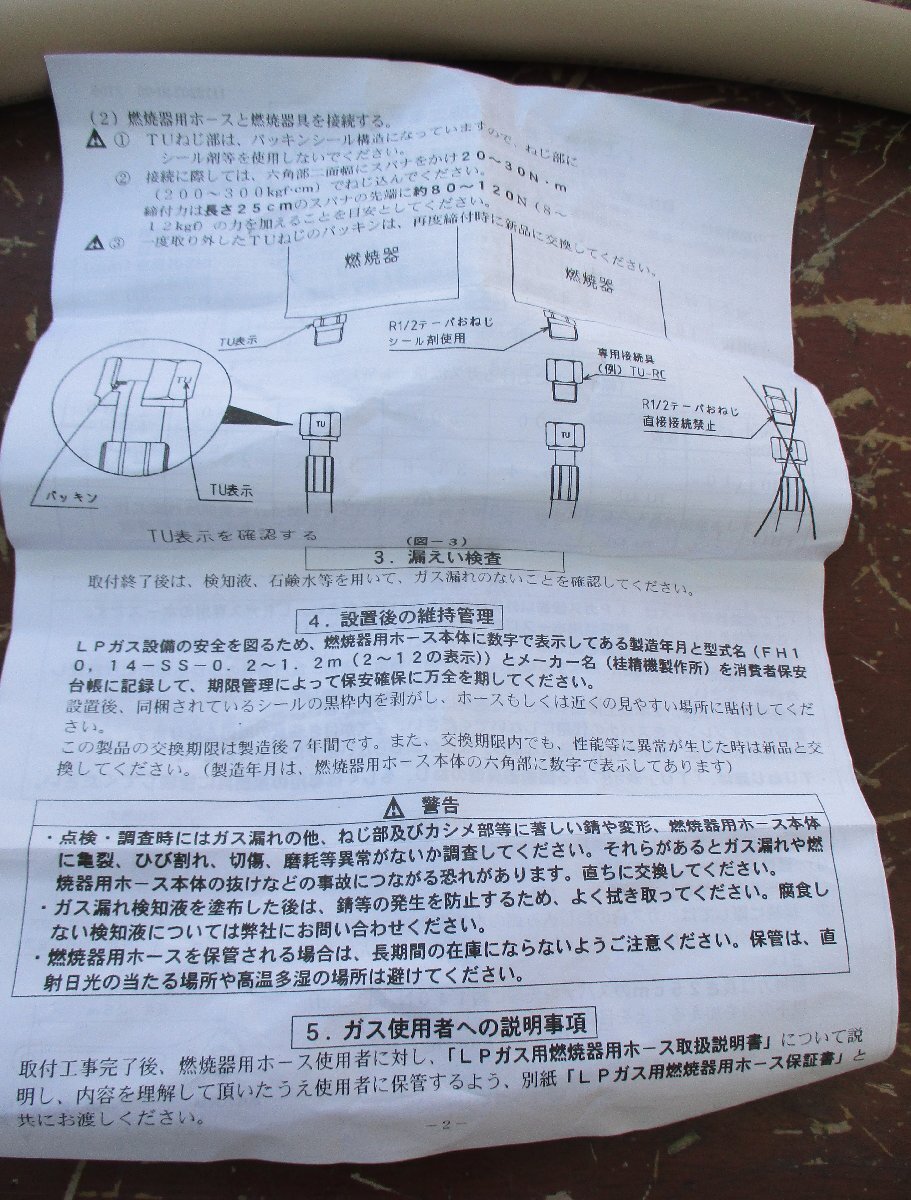 (2) 燃焼器用ホースと燃焼器具を接続する。
① TUねじ部は、パッキンシール構造になっていますので、ねじ部に
シール剤等を使用しないでください。
② 接続に際しては、六角部二面幅にスパナをかけ20～30N・m
(200～300kgf・cm)でねじ込んでください。
締付力は長さ25cmのスパナの先端に約80～120N(8～
12kgf)の力を加えることを目安としてください。
③ 一度取り外したTUねじのパッキンは、再度締付時に新品に交換してください。
燃焼器
燃焼器
TU表示
R1/2テーパおねじ
シール剤使用
専用接続具
(例) TU-RC
R1/2テーパおねじ
直接接続禁止
TU
TU
TU
パッキン
TU表示
TU表示を確認する
(図-3)
3. 漏えい検査
取付終了後は、検知液、石鹸水等を用いて、ガス漏れのないことを確認してください。
4. 設置後の維持管理
LPガス設備の安全を図るため、燃焼器用ホース本体に数字で表示してある製造年月と型式名(FH1
0,14-SS-0.2～1.2m(2～12の表示))とメーカー名(桂精機製作所)を消費者保安
台帳に記録して、期限管理によって保安確保に万全を期してください。
設置後、同梱されているシールの黒枠内を剥がし、ホースもしくは近くの見やすい場所に貼付してくだ
さい。
この製品の交換期限は製造後7年間です。また、交換期限内でも、性能等に異常が生じた時は新品と交
換してください。(製造年月は、燃焼器用ホース本体の六角部に数字で表示してあります)
警告
・点検・調査時にはガス漏れの他、ねじ部及びカシメ部等に著しい錆や変形、燃焼器用ホース本体
に亀裂、ひび割れ、切傷、磨耗等異常がないか調査してください。それらがあるとガス漏れや燃
焼器用ホース本体の抜けなどの事故につながる恐れがあります。直ちに交換してください。
・ガス漏れ検知液を塗布した後は、錆等の発生を防止するため、よく拭き取ってください。腐食し
ない検知液については弊社にお問い合わせください。
・燃焼器用ホースを保管される場合は、長期間の在庫にならないようご注意ください。保管は、直
射日光の当たる場所や高温多湿の場所は避けてください。
5. ガス使用者への説明事項
取付工事完了後、燃焼器用ホース使用者に対し、「LPガス用燃焼器用ホース取扱説明書」について説
明し、内容を理解して頂いたうえ使用者に保管するよう、別紙「LPガス用燃焼器用ホース保証書」と
共にお渡しください。
-2-